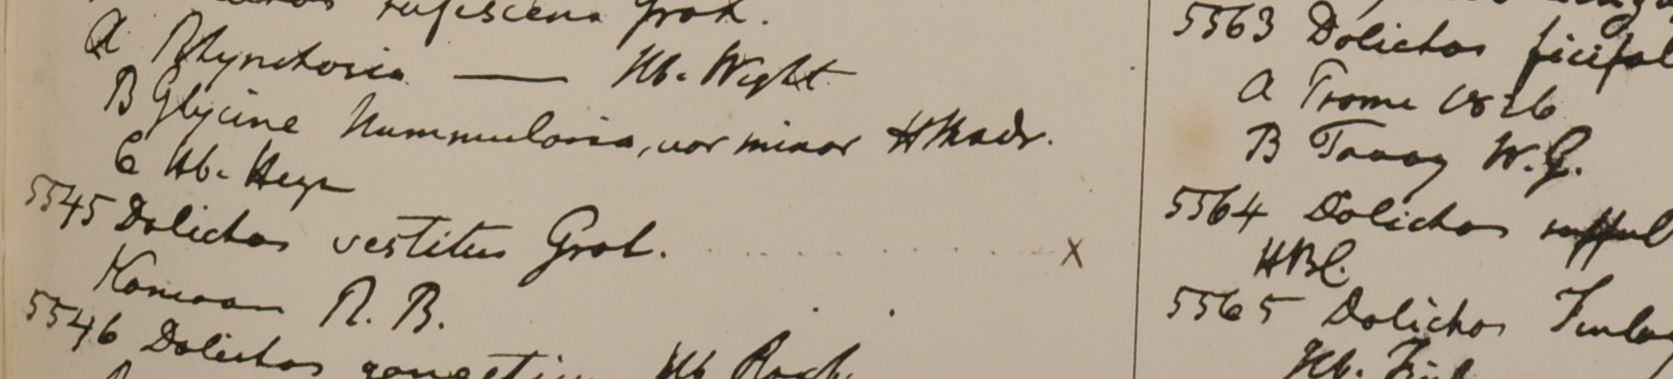 rufescens Grah.
A Rhynchosia — Hb. Wight
B Glycine Nummularia, var minor H Madr.
C Hb. Heyn
5545 Dolichos vestitus Grah. x
Kamaon R. B.
5546 Dolichos gangetic Hb Roxb.
5563 Dolichos ficifol
A Prome 1826
B Tavoy W.G.
5564 Dolichos
HBC.
5565 Dolichos Finlay
Hb. Finl